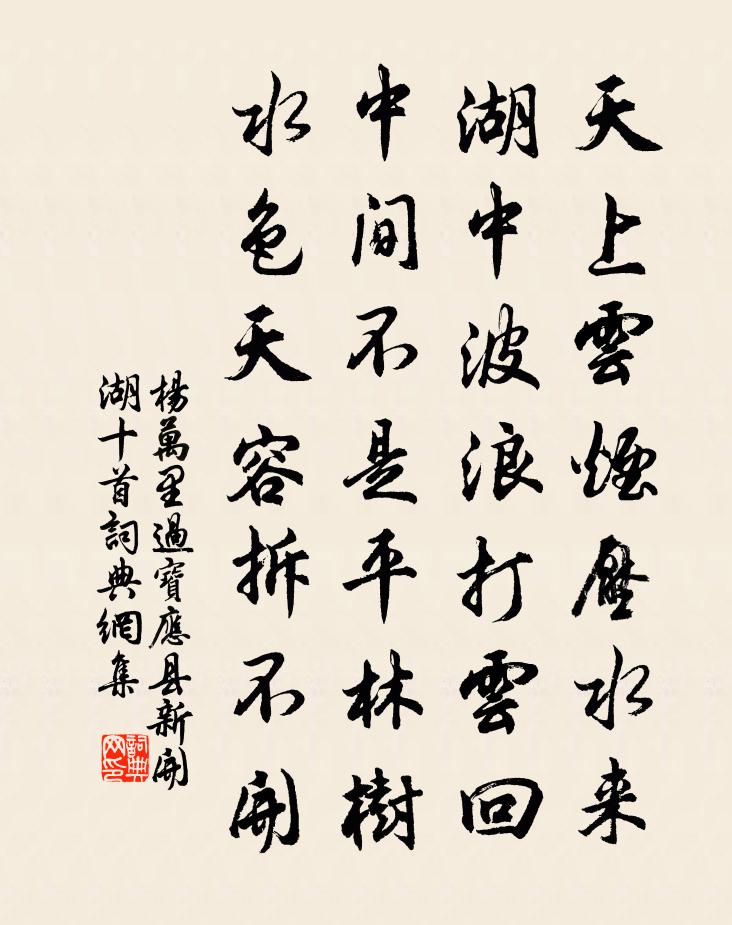 天上雲煙壓水来
湖中波浪打雲回
中间不是平林樹
水色天容拆不開
楊萬里過寶應县新開
湖十首詞典網集
詞典网印